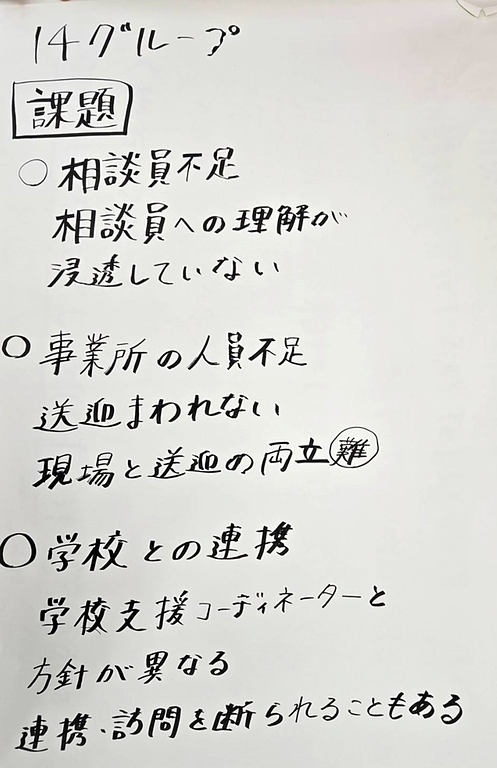 14グループ
課題
○ 相談員不足
相談員への理解が
浸透していない
○ 事業所の人員不足
送迎まわれない
現場と送迎の両立難
○ 学校との連携
学校支援コーディネーターと
方針が異なる
連携、訪問を断られることもある